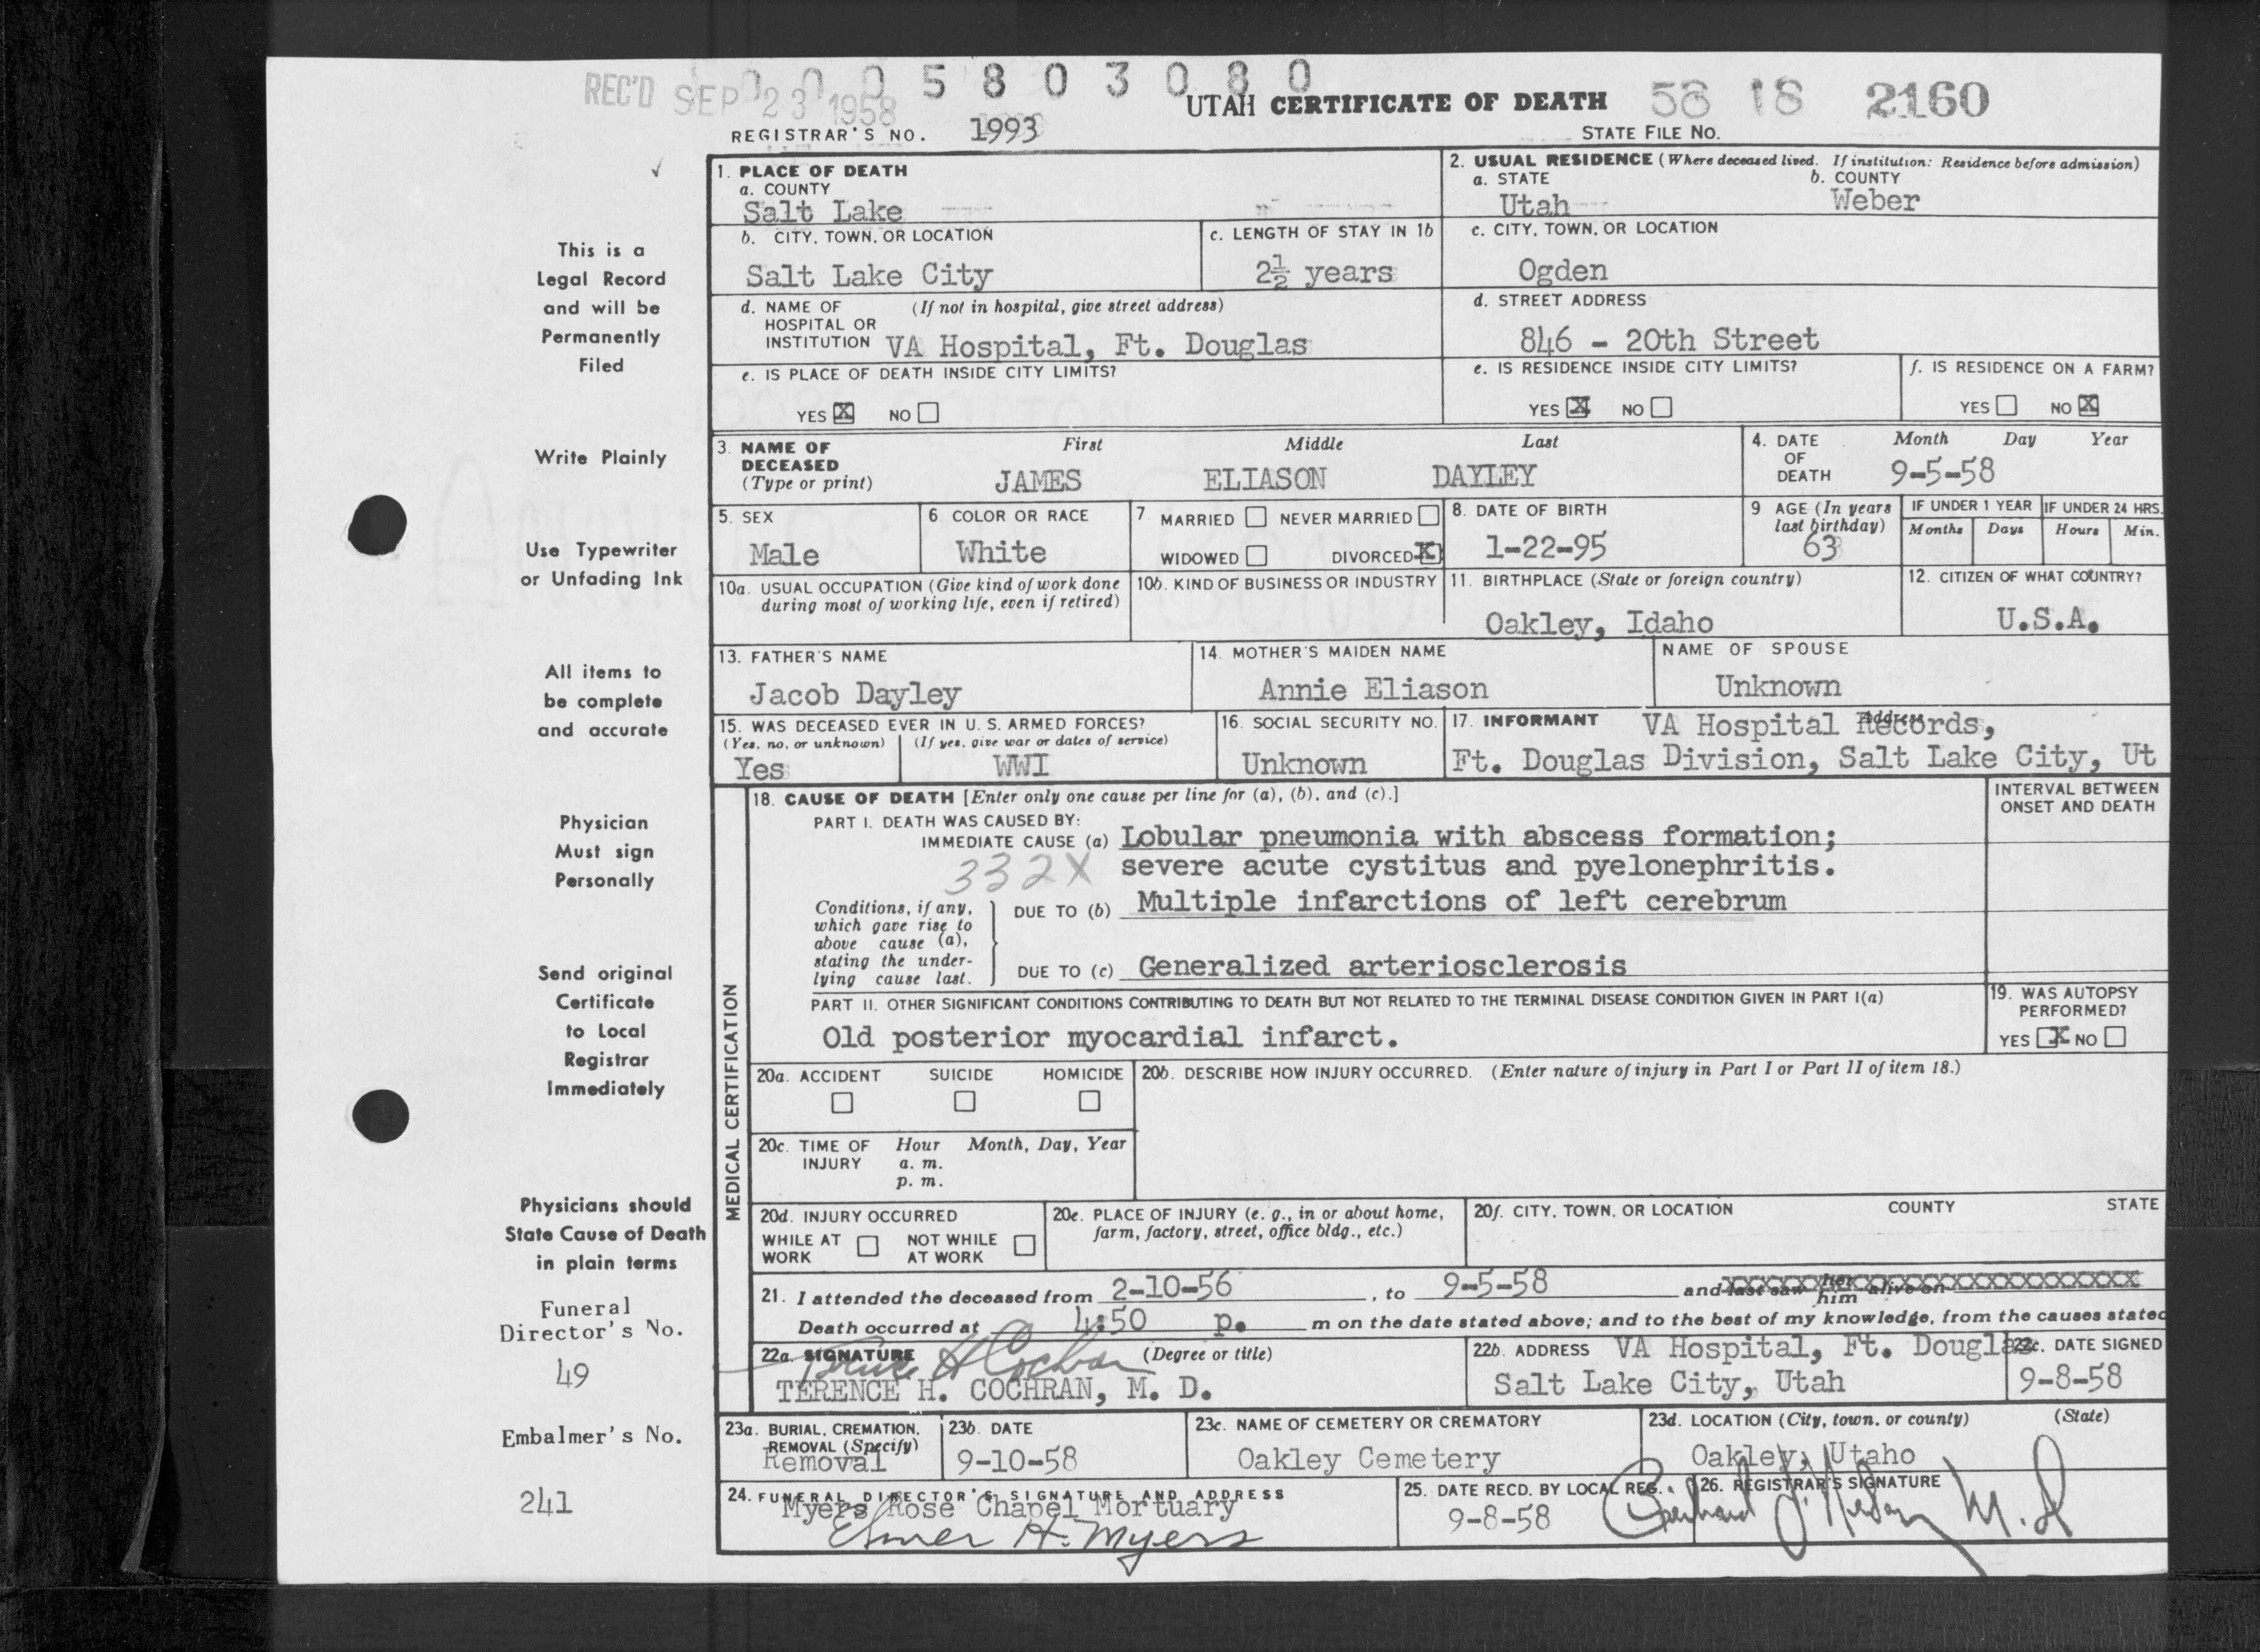 0 0 0 5 8 0 3 0 8 0
REC'D SEP 23 1958
UTAH CERTIFICATE OF DEATH 58 18 2160
REGISTRAR'S NO. 1993
STATE FILE NO.
1. PLACE OF DEATH
a. COUNTY
Salt Lake
2. USUAL RESIDENCE (Where deceased lived. If institution: Residence before admission)
a. STATE
Utah
b. COUNTY
Weber
b. CITY, TOWN, OR LOCATION
Salt Lake City
c. LENGTH OF STAY IN 1b
2½ years
c. CITY, TOWN, OR LOCATION
Ogden
d. NAME OF HOSPITAL OR INSTITUTION (If not in hospital, give street address)
VA Hospital, Ft. Douglas
d. STREET ADDRESS
846 - 20th Street
e. IS PLACE OF DEATH INSIDE CITY LIMITS?
YES X NO
e. IS RESIDENCE INSIDE CITY LIMITS?
YES X NO
f. IS RESIDENCE ON A FARM?
YES NO X
3. NAME OF DECEASED (Type or print)
First Middle Last
JAMES ELIASON DAYLEY
4. DATE OF DEATH
Month Day Year
9-5-58
5. SEX
Male
6. COLOR OR RACE
White
7. MARRIED NEVER MARRIED
WIDOWED DIVORCED X
8. DATE OF BIRTH
1-22-95
9 AGE (In years last birthday)
63
IF UNDER 1 YEAR
Months Days
IF UNDER 24 HRS.
Hours Min.
10a. USUAL OCCUPATION (Give kind of work done during most of working life, even if retired)
10b. KIND OF BUSINESS OR INDUSTRY
11. BIRTHPLACE (State or foreign country)
Oakley, Idaho
12. CITIZEN OF WHAT COUNTRY?
U.S.A.
13. FATHER'S NAME
Jacob Dayley
14. MOTHER'S MAIDEN NAME
Annie Eliason
NAME OF SPOUSE
Unknown
15. WAS DECEASED EVER IN U. S. ARMED FORCES?
(Yes, no, or unknown) (If yes, give war or dates of service)
Yes WWI
16. SOCIAL SECURITY NO.
Unknown
17. INFORMANT Address
VA Hospital Records,
Ft. Douglas Division, Salt Lake City, Ut
MEDICAL CERTIFICATION
18. CAUSE OF DEATH [Enter only one cause per line for (a), (b), and (c).]
INTERVAL BETWEEN ONSET AND DEATH
PART I. DEATH WAS CAUSED BY:
IMMEDIATE CAUSE (a) Lobular pneumonia with abscess formation;
332X severe acute cystitus and pyelonephritis.
Conditions, if any, which gave rise to above cause (a), stating the underlying cause last.
DUE TO (b) Multiple infarctions of left cerebrum
DUE TO (c) Generalized arteriosclerosis
PART II. OTHER SIGNIFICANT CONDITIONS CONTRIBUTING TO DEATH BUT NOT RELATED TO THE TERMINAL DISEASE CONDITION GIVEN IN PART I(a)
Old posterior myocardial infarct.
19. WAS AUTOPSY PERFORMED?
YES X NO
20a. ACCIDENT SUICIDE HOMICIDE
20b. DESCRIBE HOW INJURY OCCURRED. (Enter nature of injury in Part I or Part II of item 18.)
20c. TIME OF INJURY Hour Month, Day, Year
a. m.
p. m.
20d. INJURY OCCURRED
WHILE AT WORK NOT WHILE AT WORK
20e. PLACE OF INJURY (e. g., in or about home, farm, factory, street, office bldg., etc.)
20f. CITY, TOWN, OR LOCATION COUNTY STATE
21. I attended the deceased from 2-10-56, to 9-5-58 and last saw her him alive on
Death occurred at 4:50 p. m on the date stated above; and to the best of my knowledge, from the causes stated
22a. SIGNATURE (Degree or title)
Terence H Cochran
TERENCE H. COCHRAN, M. D.
22b. ADDRESS VA Hospital, Ft. Douglas
Salt Lake City, Utah
22c. DATE SIGNED
9-8-58
23a. BURIAL, CREMATION, REMOVAL (Specify)
Removal
23b. DATE
9-10-58
23c. NAME OF CEMETERY OR CREMATORY
Oakley Cemetery
23d. LOCATION (City, town, or county) (State)
Oakley, Utaho
24. FUNERAL DIRECTOR'S SIGNATURE AND ADDRESS
Myers Rose Chapel Mortuary
Elmer A. Myers
25. DATE RECD. BY LOCAL REG.
9-8-58
26. REGISTRAR'S SIGNATURE
M.D
This is a
Legal Record
and will be
Permanently
Filed
Write Plainly
Use Typewriter
or Unfading Ink
All items to
be complete
and accurate
Physician
Must sign
Personally
Send original
Certificate
to Local
Registrar
Immediately
Physicians should
State Cause of Death
in plain terms
Funeral
Director's No.
49
Embalmer's No.
241